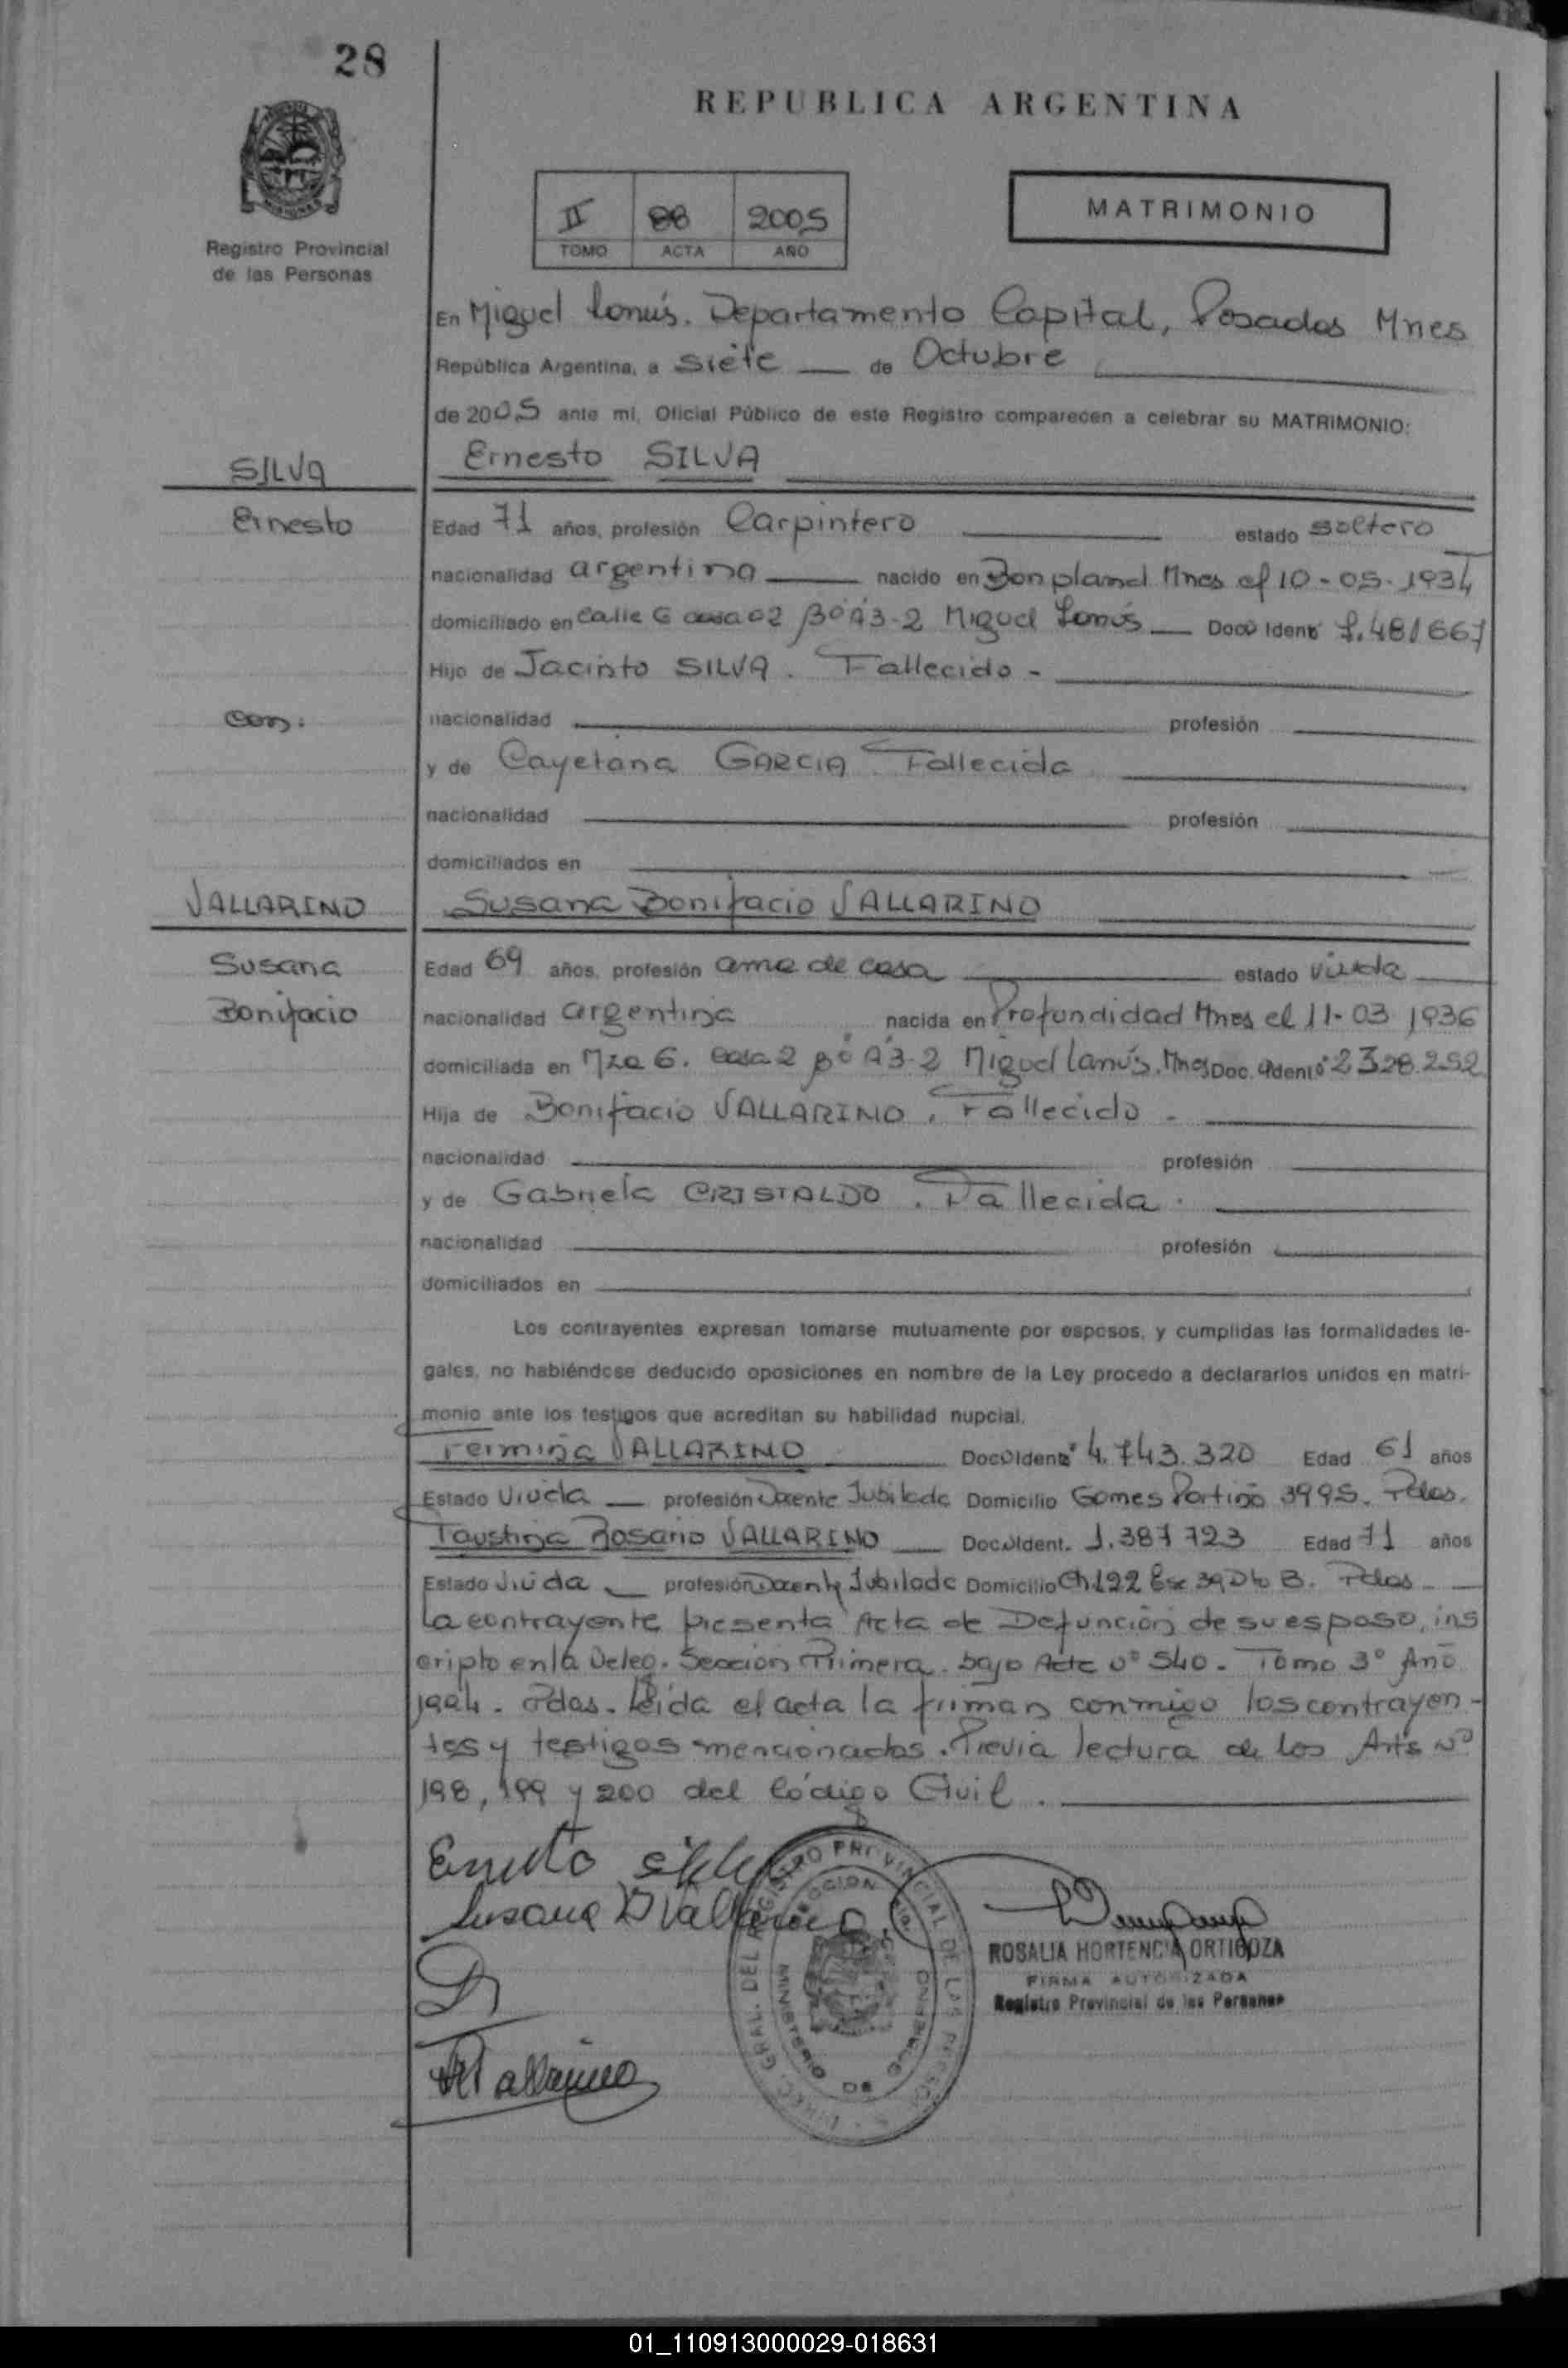 28
REPUBLICA ARGENTINA
Registro Provincial
de las Personas
II 88 2005
TOMO ACTA AÑO
MATRIMONIO
En Miguel Lanús. Departamento Capital, Posadas Mnes
República Argentina, a siete de Octubre
de 2005 ante mí, Oficial Público de este Registro comparecen a celebrar su MATRIMONIO:
SILVA
Ernesto SILVA
Ernesto
Edad 71 años, profesión Carpintero estado soltero
nacionalidad argentino nacido en Bonpland Mnes el 10-05-1934
domiciliado en calle G casa 02 Bº A3-2 Miguel Lanús Doc Ident 7.481667
Hijo de Jacinto SILVA. Fallecido -
con:
nacionalidad profesión
y de Cayetana GARCIA Fallecida
nacionalidad profesión
domiciliados en
VALLARINO
Susana Bonifacio VALLARINO
Susana
Bonifacio
Edad 69 años, profesión ama de casa estado viuda
nacionalidad argentina nacida en Profundidad Mnes el 11-03 1936
domiciliada en Mza G. casa 2 Bº A3-2 Miguel Lanús. Mnes Doc. Ident 2.328.252
Hija de Bonifacio VALLARINO. Fallecido -
nacionalidad profesión
y de Gabriela CRISTALDO. Fallecida.
nacionalidad profesión
domiciliados en
Los contrayentes expresan tomarse mutuamente por esposos, y cumplidas las formalidades le-
gales, no habiéndose deducido oposiciones en nombre de la Ley procedo a declararlos unidos en matri-
monio ante los testigos que acreditan su habilidad nupcial.
Fermina VALLARINO Doc Ident 4.743.320 Edad 61 años
Estado Viuda profesión Docente Jubilada Domicilio Gomes Portiño 3995. Pdas.
Faustina Rosario VALLARINO Doc Ident. 1.387 723 Edad 71 años
Estado viuda profesión Docente Jubilada Domicilio Ch 122 Esc 39 Dto B. Pdas
La contrayente presenta Acta de Defunción de su esposo, ins
cripto en la Deleg. Sección Primera. bajo Acta Nº 540. Tomo 3º Año
1994. Pdas. Leida el acta la firman conmigo los contrayen-
tes y testigos mencionados. Previa lectura de los Arts Nº
198, 199 y 200 del Código Civil.
Ernesto Silva
Susana B Vallarino
ROSALIA HORTENCIA ORTIGOZA
FIRMA AUTORIZADA
Registro Provincial de las Personas
DIREC. GRAL. DEL REGISTRO PROVINCIAL DE LAS PERSONAS
MINISTERIO DE GOBIERNO
Vallarino
01_110913000029-018631